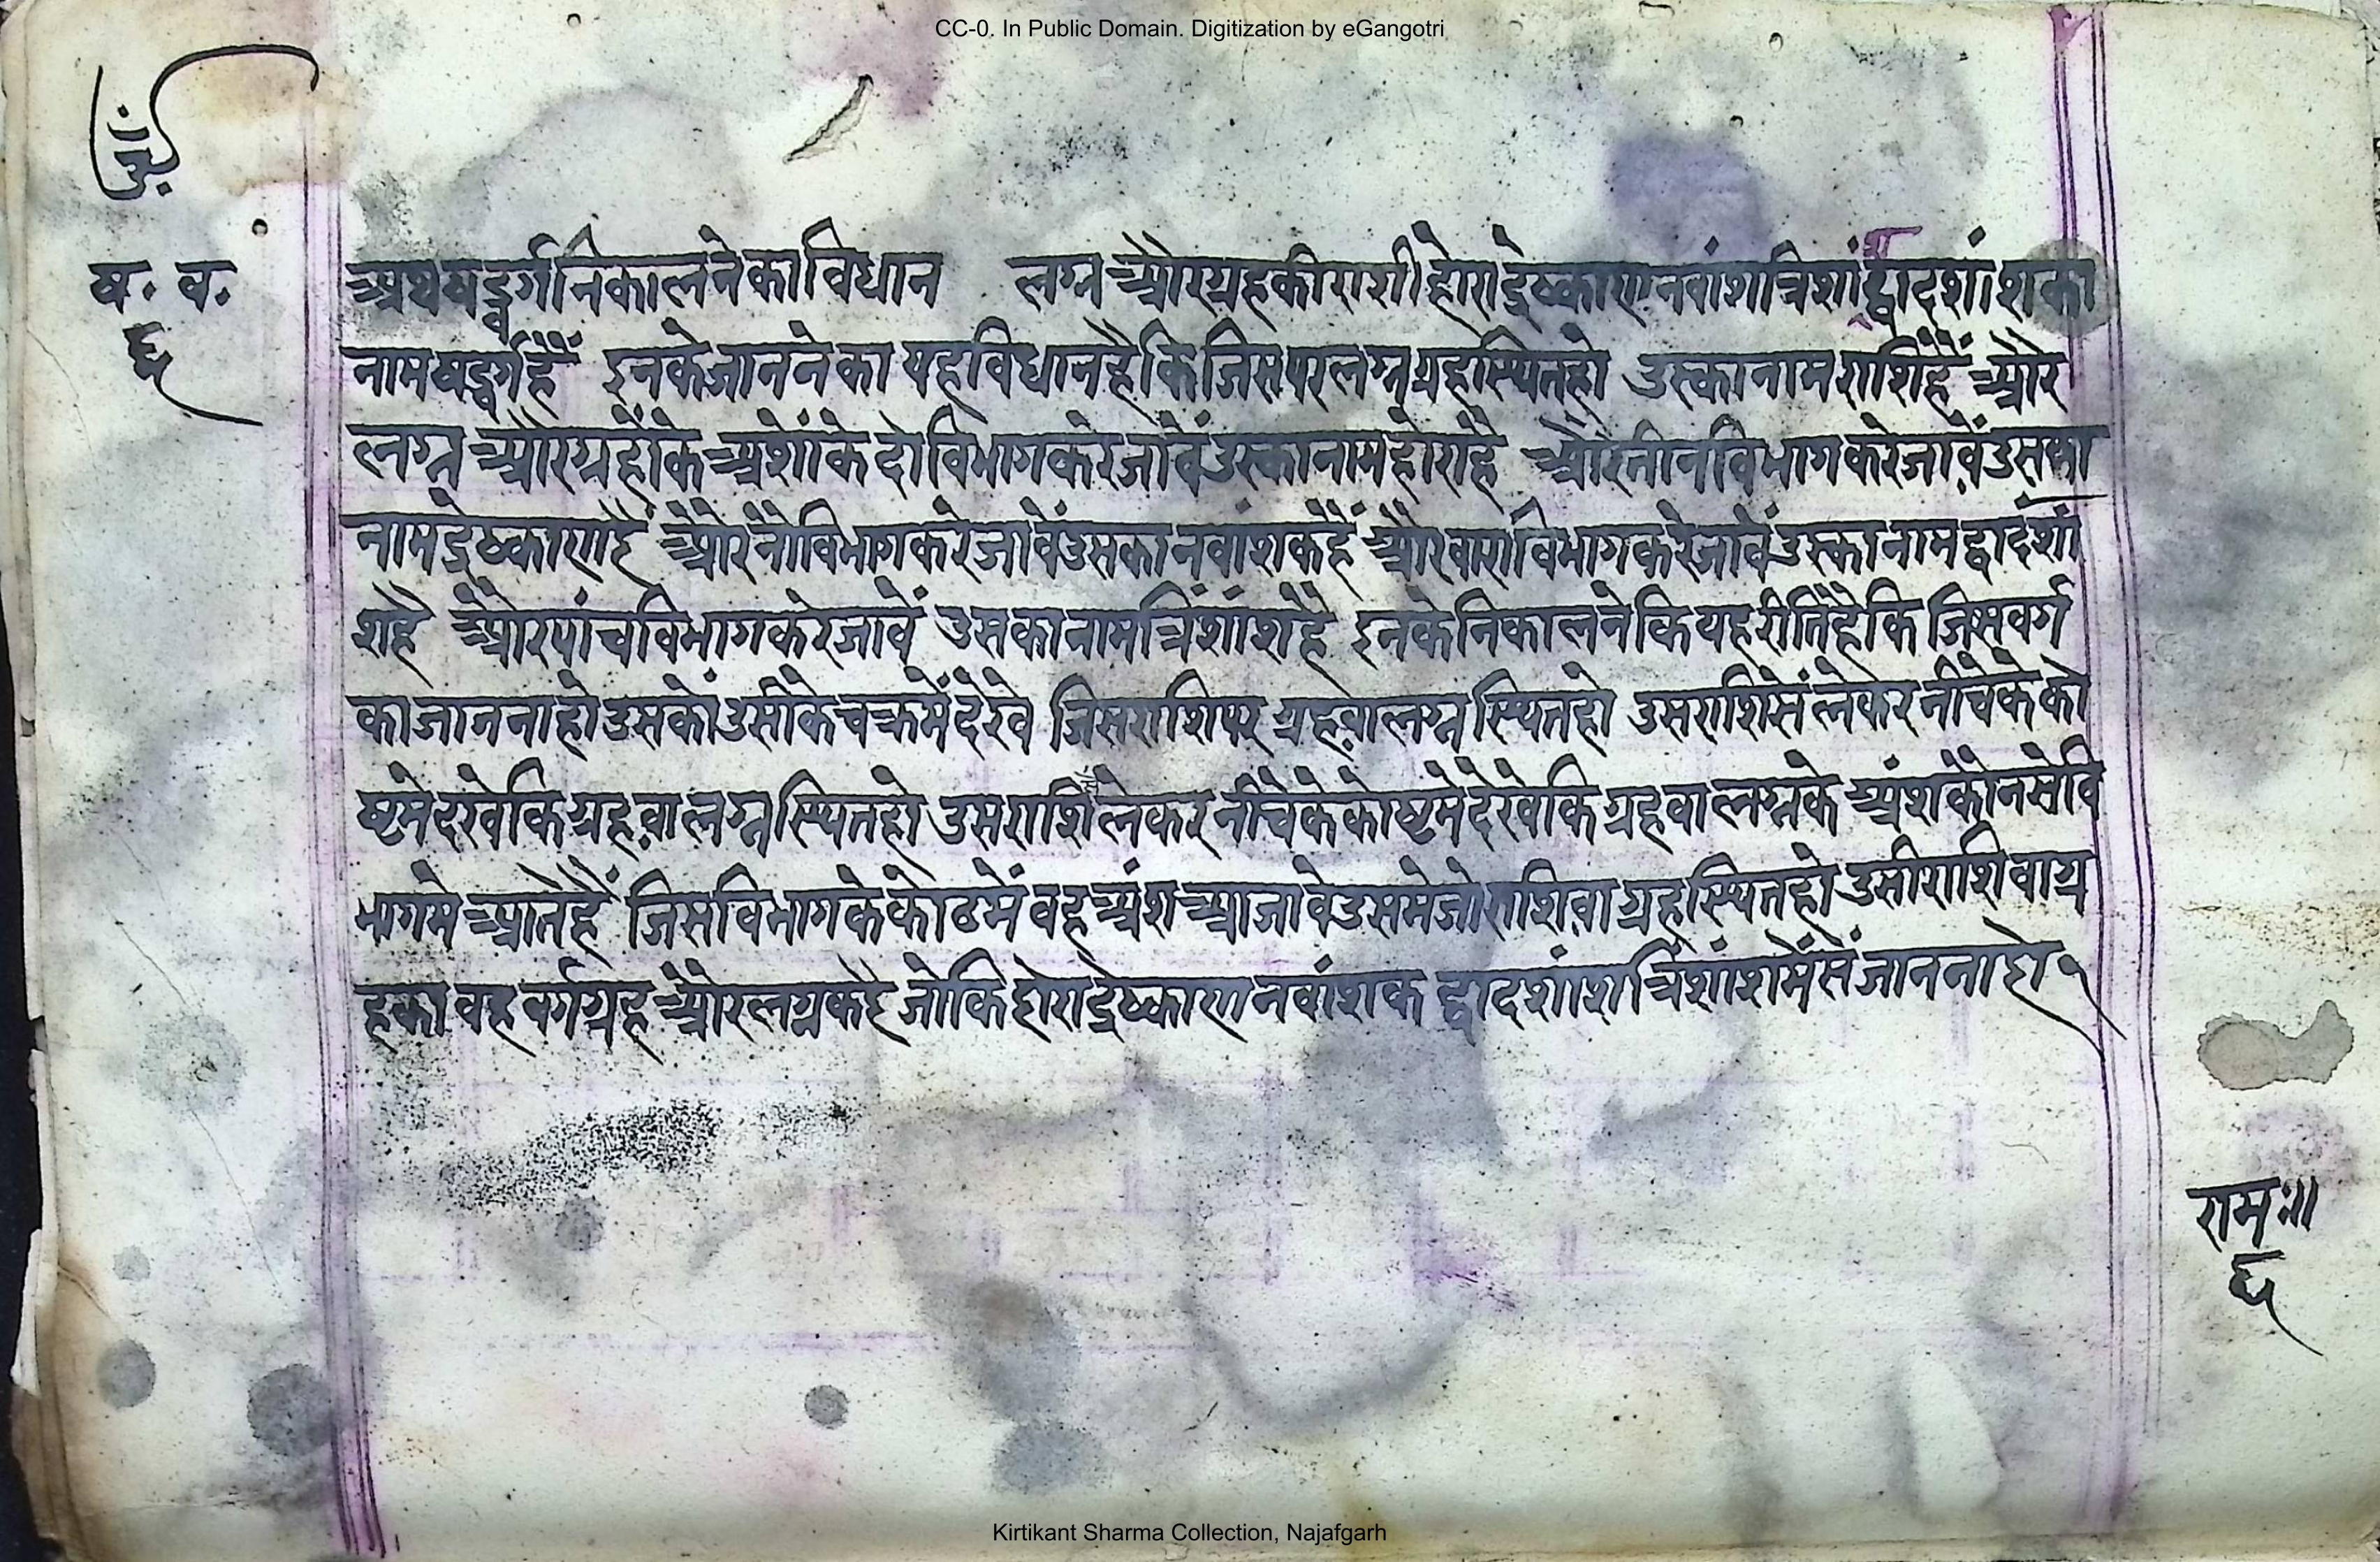 CC-0. In Public Domain. Digitization by eGangotri
ष. व.
६
अथषड्वर्गनिकालनेकाविधान लग्न औरग्रहकीराशी होराद्रेष्काणनवांशत्रिशांशद्वादशांशका
नामषड्वर्गहैं इनकेजाननेका यहविधानहैकिजिसपरलग्नग्रहस्थितहो उस्कानामराशिहैं और
लग्न औरग्रहोंके अशोंके दोविभागकरेजावेंउस्कानामहोराहै औरतीनविभागकरेजावेंउसका
नामद्रेष्काणहै औरनौविभागकरेजावेंउसकानवांशकहैं औरबाराविभागकरेजावेंउस्कानामद्वादशां
शहै औरपांचविभागकरेजावें उसकानामत्रिंशांशहै इनकेनिकालनेकियहरीतिहैकि जिसवर्ग
काजाननाहोउसकोंउसीकेचक्रमेंदेखे जिसराशिपर ग्रहवालग्न स्थितहो उसराशिसेंलेकरनीचेकेको
ष्टमेदखेकिग्रहवालग्नस्थितहो उसराशिलेकर नीचेकेकोष्टमेदेखेकिग्रहवालग्नके अंशकोनसेवि
भागमेआतेहैं जिसविभागकेकोठमें वहअंश आजावेउसमेजोराशिवाग्रहस्थितहो उसीराशिवाग्र
हका वह वर्गग्रह औरलग्नकहै जोकिहोराद्रेष्काणनवांशक द्वादशांशत्रिंशांशमेंसेंजाननाहो १
रामः॥
६
Kirtikant Sharma Collection, Najafgarh